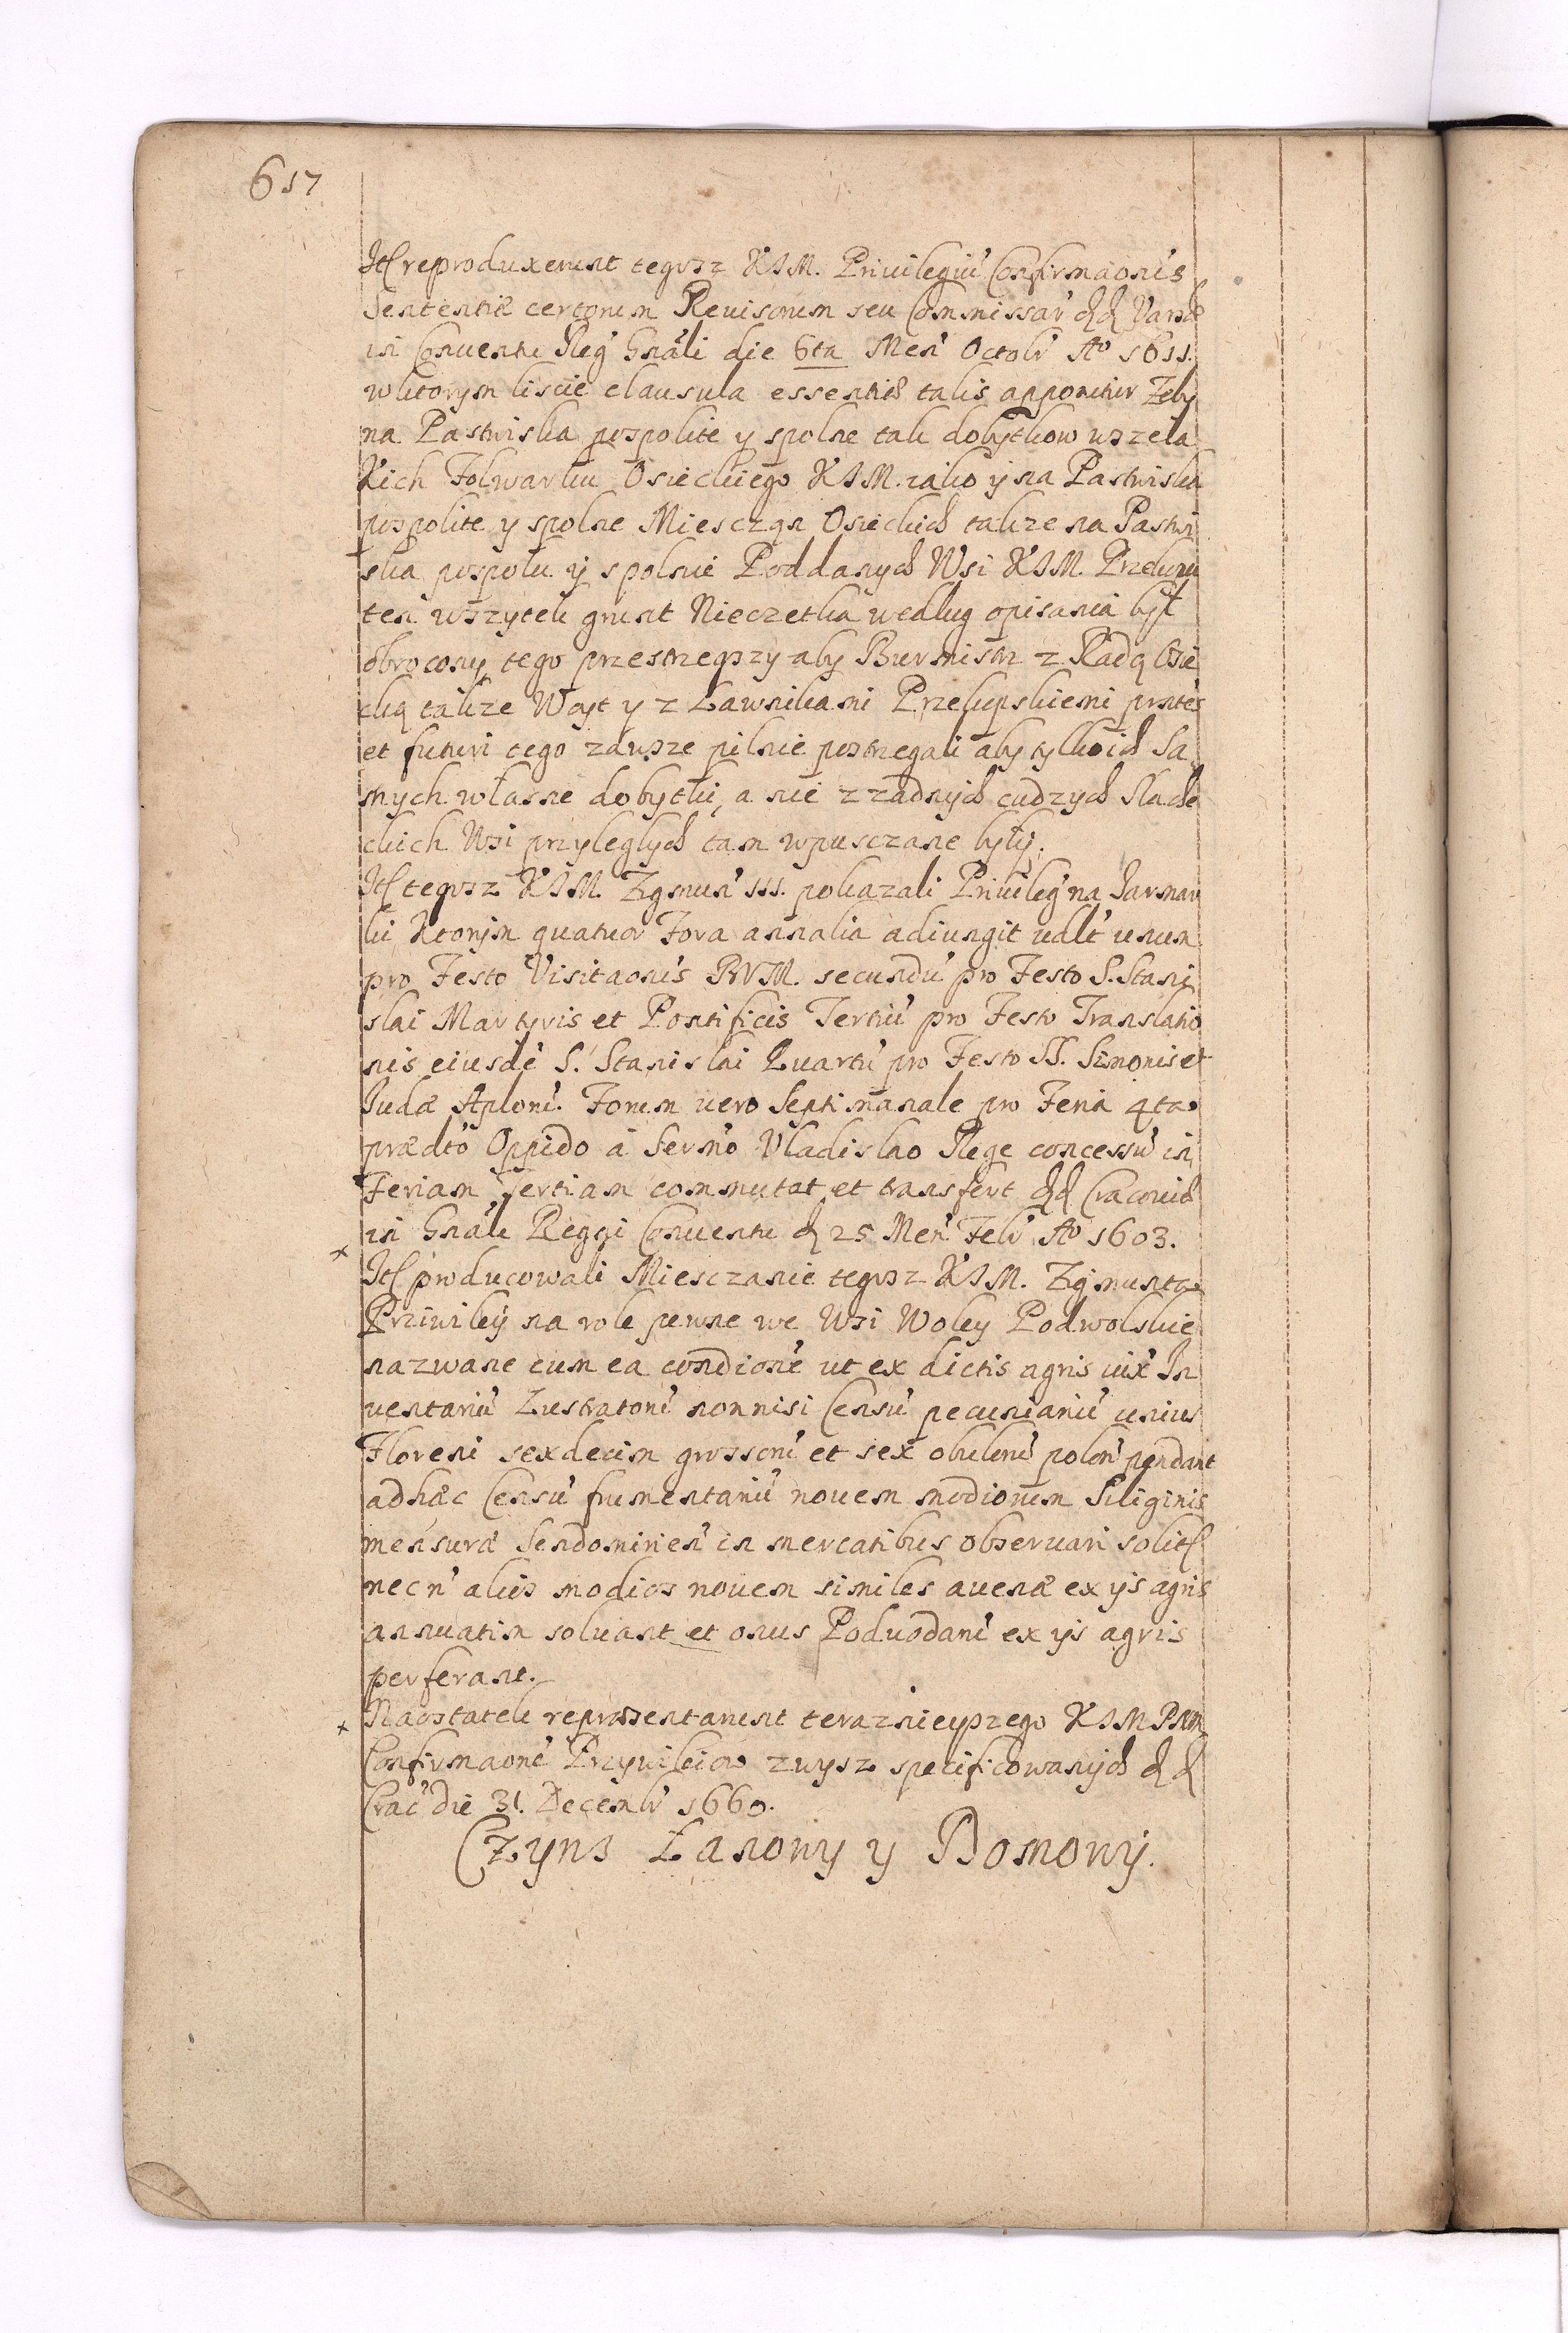 617
Itl reproduxerunt tegosz KIM. Priuilegiu' Confirmaonis
Sententiæ certorum Reuisorum seu Commissar' dd Varsæ
in Conuentu Reg' Gnali die 6ta Men' Octobr' A° 1611.
wktorym liscie clausula essentiæ talis apponitur Zeby
na Pastwiska pospolite y spolne tak dobytkow wszela
Kich Folwarku Osieckiego KIM. iako y na Pastwiska
pospolite y spolne Miesczan Osieckich takze na Pastwi
ska pospolu y spolnie Poddanych Wsi KIM.
ten wszytek grunt Nieczetka według opisania był
obrocony, tego przestrzegszy aby Burmistrz z Radą Osie
cką takze Woyt y z Ławnikami Przekupskiemi prntes
et futuri tego zawsze pilnie postrzegali aby tylko ich Sa
mych własne dobytki, a nie z zadnych cudzych Slache
ckich Wsi przyległych tam wpusczane były.
Itl tegosz KIM. Zigmun' III. pokazali Priuileg' na Iarmar
ki Ktorym quatuor Fora annalia adiungit udlt' unum
pro Festo Visitaonis BVM. secundu' pro Festo S. Stani
slai Martyris et Pontificis Tertiu' pro Festo Translatio
nis eiusde' S. Stanislai Quartu' pro Festo SS. Simonis et
Iudæ Aploru'. Forum uero Septimanale pro Feria 4ta
prædto Oppido a Sermo Vladislao Rege concessu' in
Feriam Tertiam commutat et transfert dd Cracouiæ
in Gnali Regni Conuentu d 25 Men' Febr' A° 1603.
x
Itl producowali Miesczanie tegosz KIM. Zigmunta
Priuiley na role pewne we Wsi Woley Podwolskie
nazwane cum ea condione ut ex dictis agris iux' In
uentariu' Lustratoru' nonnisi Censu' pecuniariu' unius
Floreni sexdecim grossoru' et sex obuloru' polon' pendant
adhæc Censu' frumentariu' nouem modiorum Siliginis
mensuræ Sendomirien' in mercatibus obseruari solitæ
necn' alios modios nouem similes auenæ ex ys agris
annuatim soluant et onus Poduodaru' ex ys agris
perferant.
x
Naostatek repræsentarunt teraznieyszego KIMPNM
Confirmaone' Przywileiow zwysz specificowanych dd
Crac' die 31. Decembr' 1660.
Czyns Łanowy y Domowy.